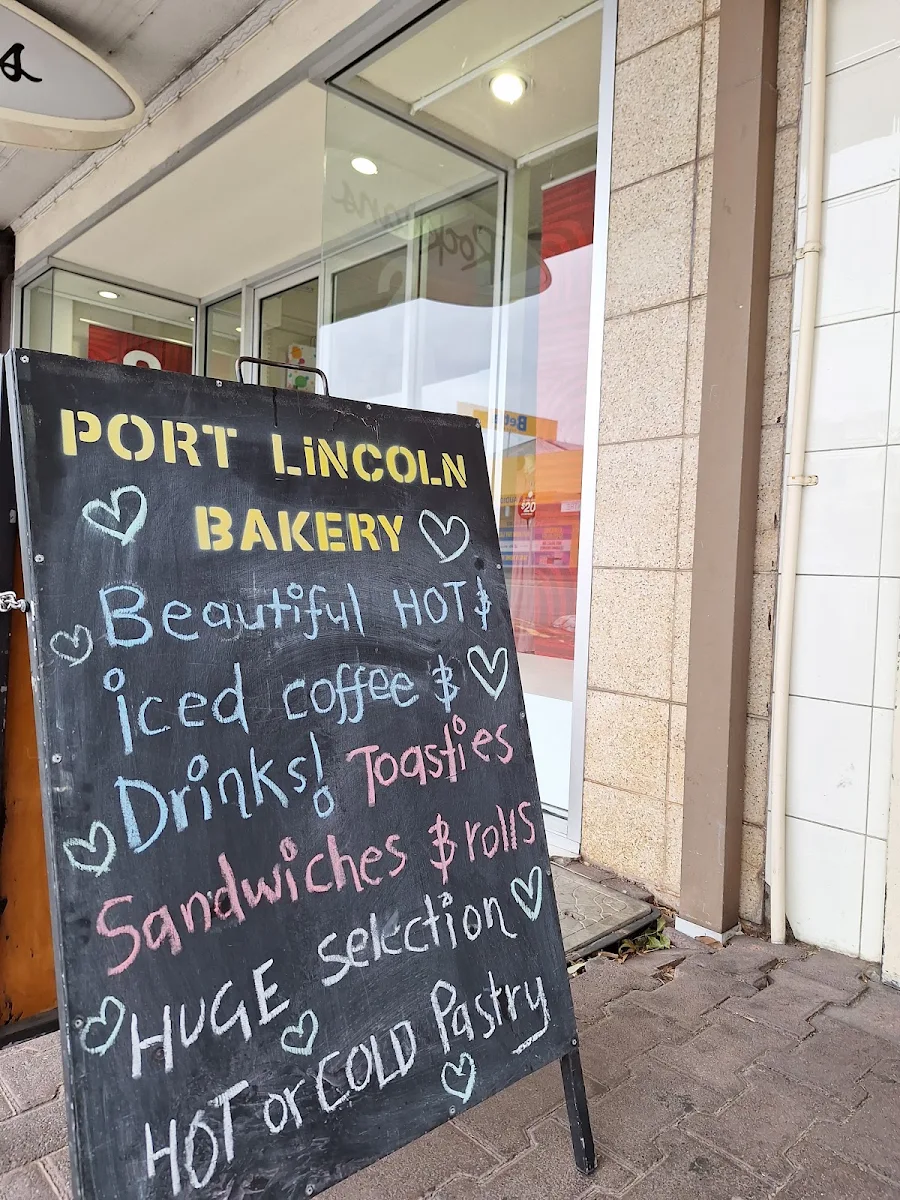 PORT LiNCOLN
BAKERY
Beautiful HOT &
iced coffee &
Drinks! Toasties
Sandwiches & rolls
HUGE selection
HOT or COLD Pastry
$20